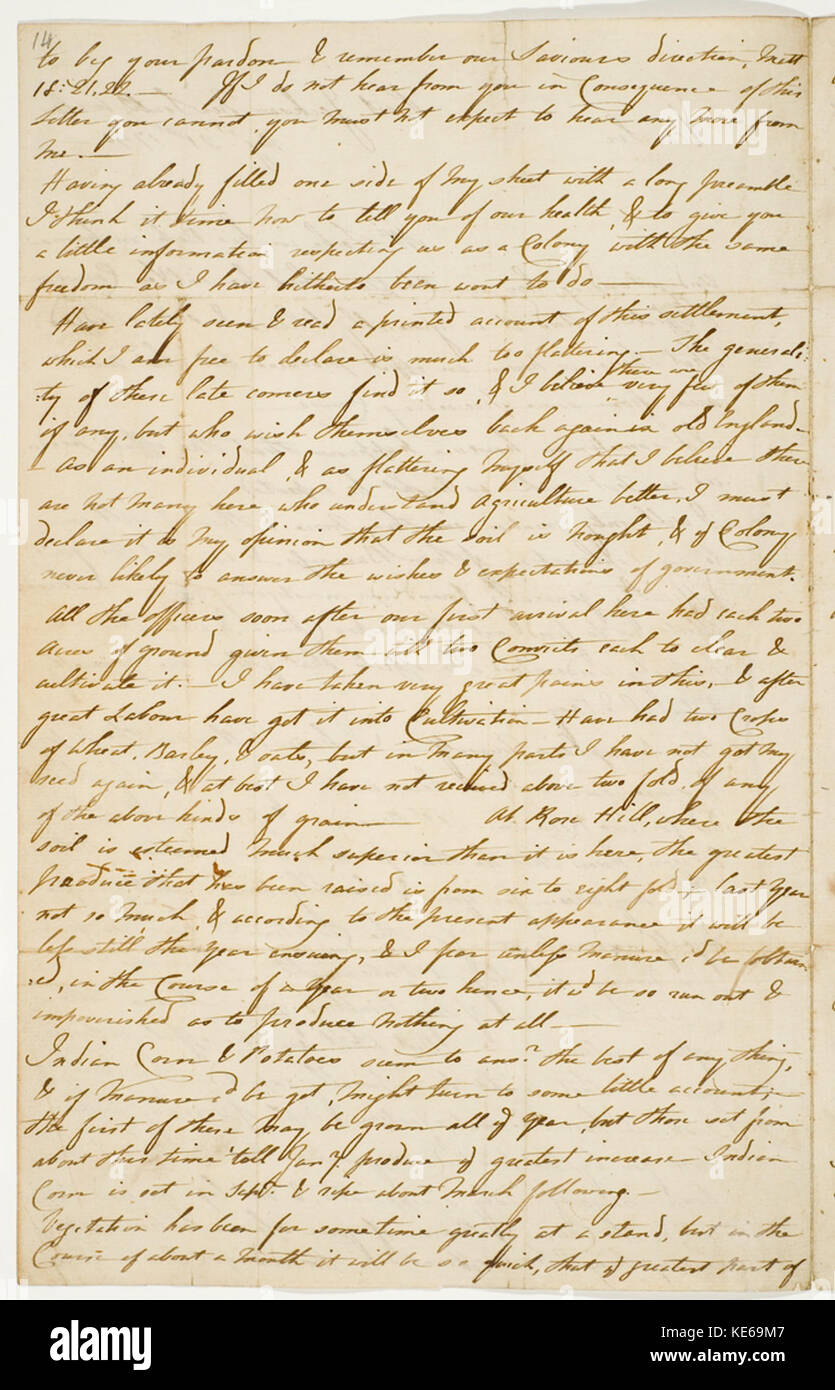 14
to beg your pardon & remember our Saviours direction, Matt
18: 21,22. — If I do not hear from you in Consequence of this
Letter you cannot, you must not expect to hear any more from
me. —
Having already filled one side of my sheet with a long preamble
I think it time now to tell you of our health, & to give you
a little information respecting us as a Colony with the same
freedom as I have hitherto been wont to do —
Have lately seen & read a printed account of this settlement,
which I am free to declare is much too flattering. — The generali:
:ty of these late comers find it so, & I believe there are very few of them
if any, but who wish themselves back again in old England —
— As an individual, & as flattering myself that I believe there
are not many here, who understand agriculture better, I must
declare it is my opinion that the soil is nought, & ye Colony
never likely to answer the wishes & expectations of government.
All the officers soon after our first arrival here had each two
Acres of ground given them with two Convicts each to clear &
cultivate it. — I have taken very great pains in this, & after
great Labour have got it into Cultivation — Have had two Crops
of wheat, Barley, & oats, but in many parts I have not got my
seed again, & at best I have not received above two fold, of any
of the above kinds of grain — At Rose Hill, where the
soil is esteemed much superior than it is here, the greatest
produce that has been raised is from six to eight fold; last year
not so much, & according to the present appearance it will be
less still the year ensuing, & I fear unless Manure cd be obtain
:ed, in the Course of a year or two hence, it wd be so run out &
impoverished as to produce nothing at all —
Indian Corn & Potatoes seem to ansr. the best of any thing,
& if manure cd be got, might turn to some little account; —
the first of these may be grown all ye year, but those set from
about this time 'till Jany. produce ye greatest increase Indian
Corn is set in Sept. & ripe about March following. —
Vegetation has been for some time greatly at a stand, but in the
Course of about a month it will be so quick, that ye greatest part of
alamy
a
alamy stock photo
KE69M7
www.alamy.com